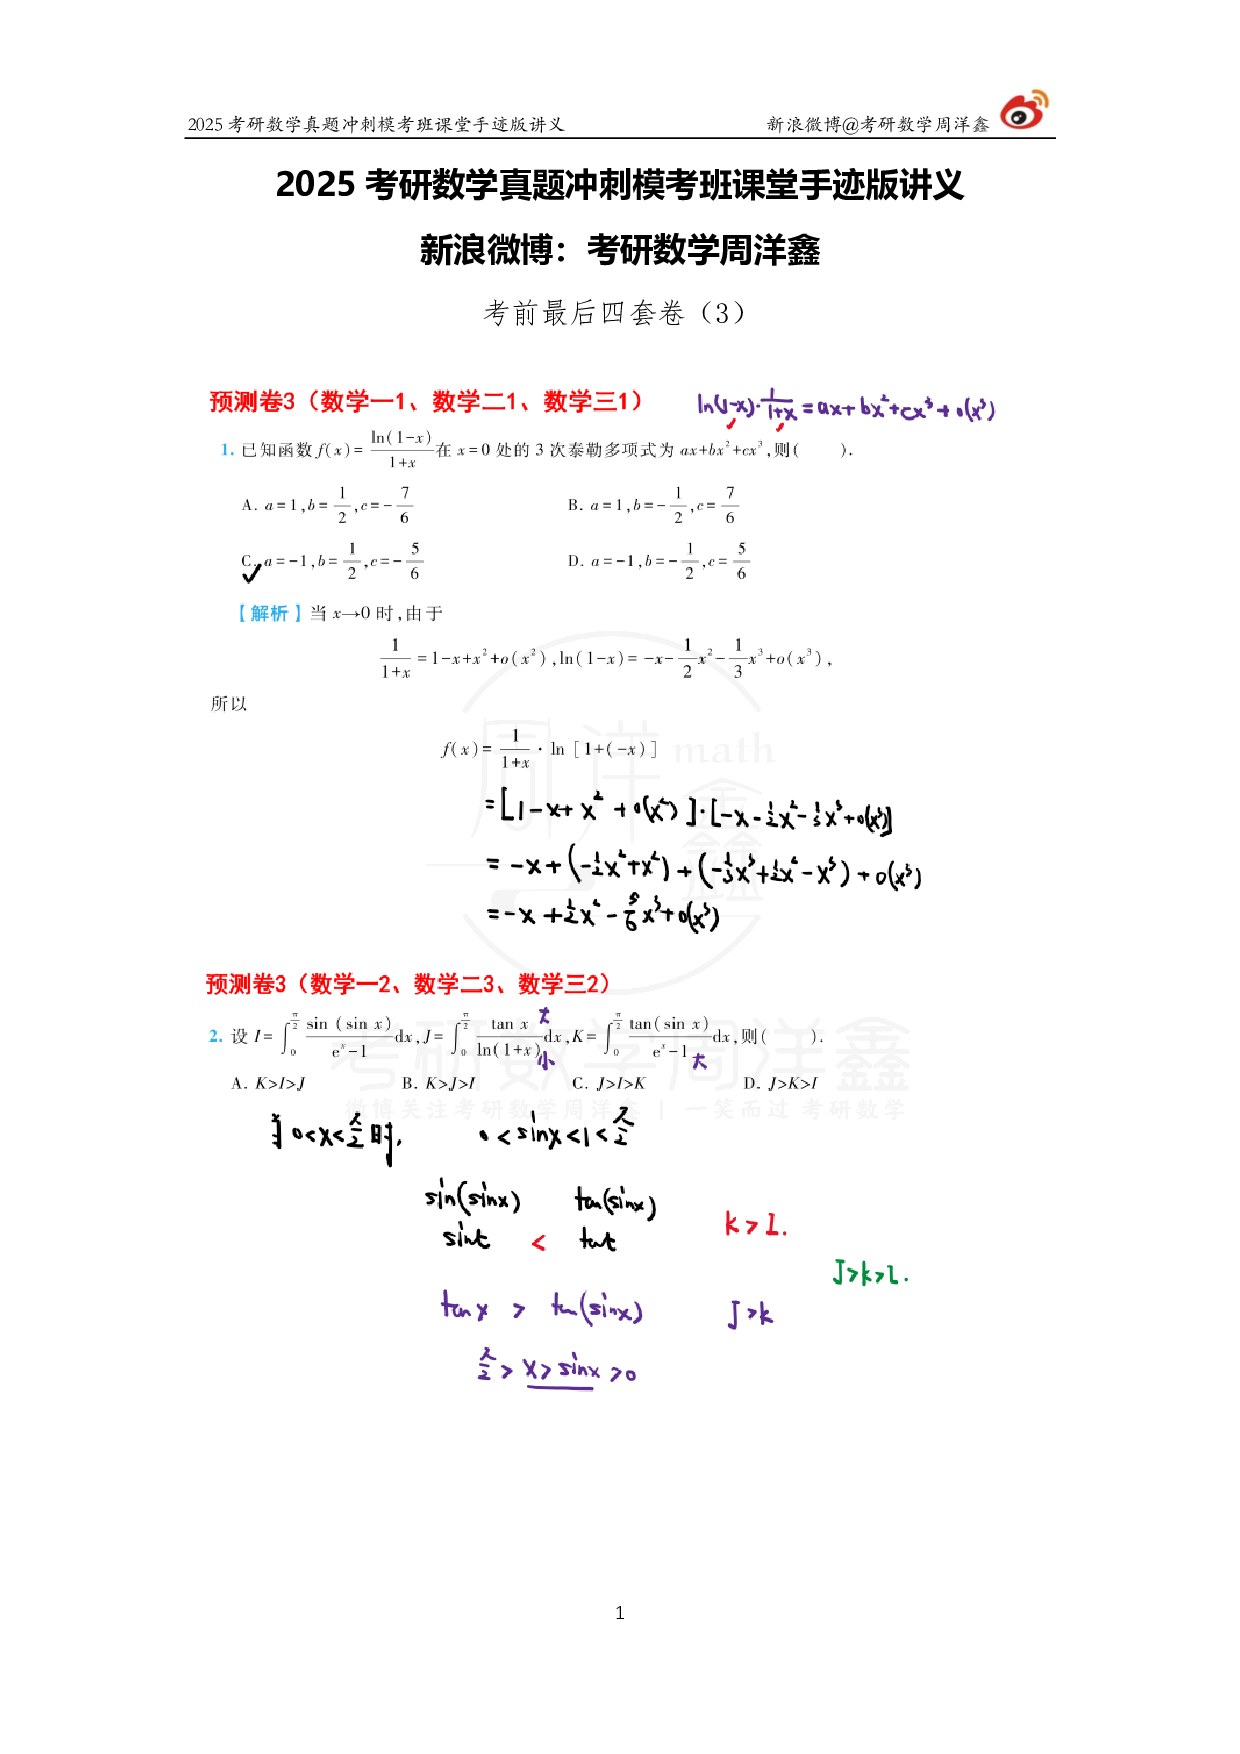 2025 考研数学真题冲刺模考班课堂手迹版讲义 新浪微博@考研数学周洋鑫
2025 考研数学真题冲刺模考班课堂手迹版讲义
新浪微博：考研数学周洋鑫
考前最后四套卷（3）
预测卷3（数学一1、数学二1、数学三1）
ln(1-x)·1/(1+x) = ax+bx²+cx³+o(x³)
1. 已知函数 f(x)=ln(1-x)/(1+x) 在 x=0 处的 3 次泰勒多项式为 ax+bx²+cx³,则( ).
A. a=1,b=1/2,c=-7/6 B. a=1,b=-1/2,c=7/6
C. a=-1,b=1/2,c=-5/6 D. a=-1,b=-1/2,c=5/6
【解析】当 x→0 时,由于
1/(1+x)=1-x+x²+o(x²),ln(1-x)=-x-1/2x²-1/3x³+o(x³),
所以
f(x)=1/(1+x)·ln[1+(-x)]
=[1-x+x²+o(x²)]·[-x-1/2x²-1/3x³+o(x³)]
=-x+(-1/2x²+x²)+(-1/3x³+1/2x²-x³)+o(x³)
=-x+1/2x²-5/6x³+o(x³)
周洋鑫 math
预测卷3（数学一2、数学二3、数学三2）
2. 设 I=∫₀^(π/2) sin(sin x)/(eˣ-1)dx,J=∫₀^(π/2) tan x/ln(1+x)dx,K=∫₀^(π/2) tan(sin x)/(eˣ-1)dx,则( ).
大
小
大
考研数学周洋鑫
A. K>I>J B. K>J>I C. J>I>K D. J>K>I
微博关注考研数学周洋鑫 | 一笑而过 考研数学
当 0<x<π/2 时, 0<sinx<1<π/2
sin(sinx) tan(sinx)
sint < tant
K>I.
J>K>I.
tanx > tan(sinx) J>K
π/2>x>sinx>0
1